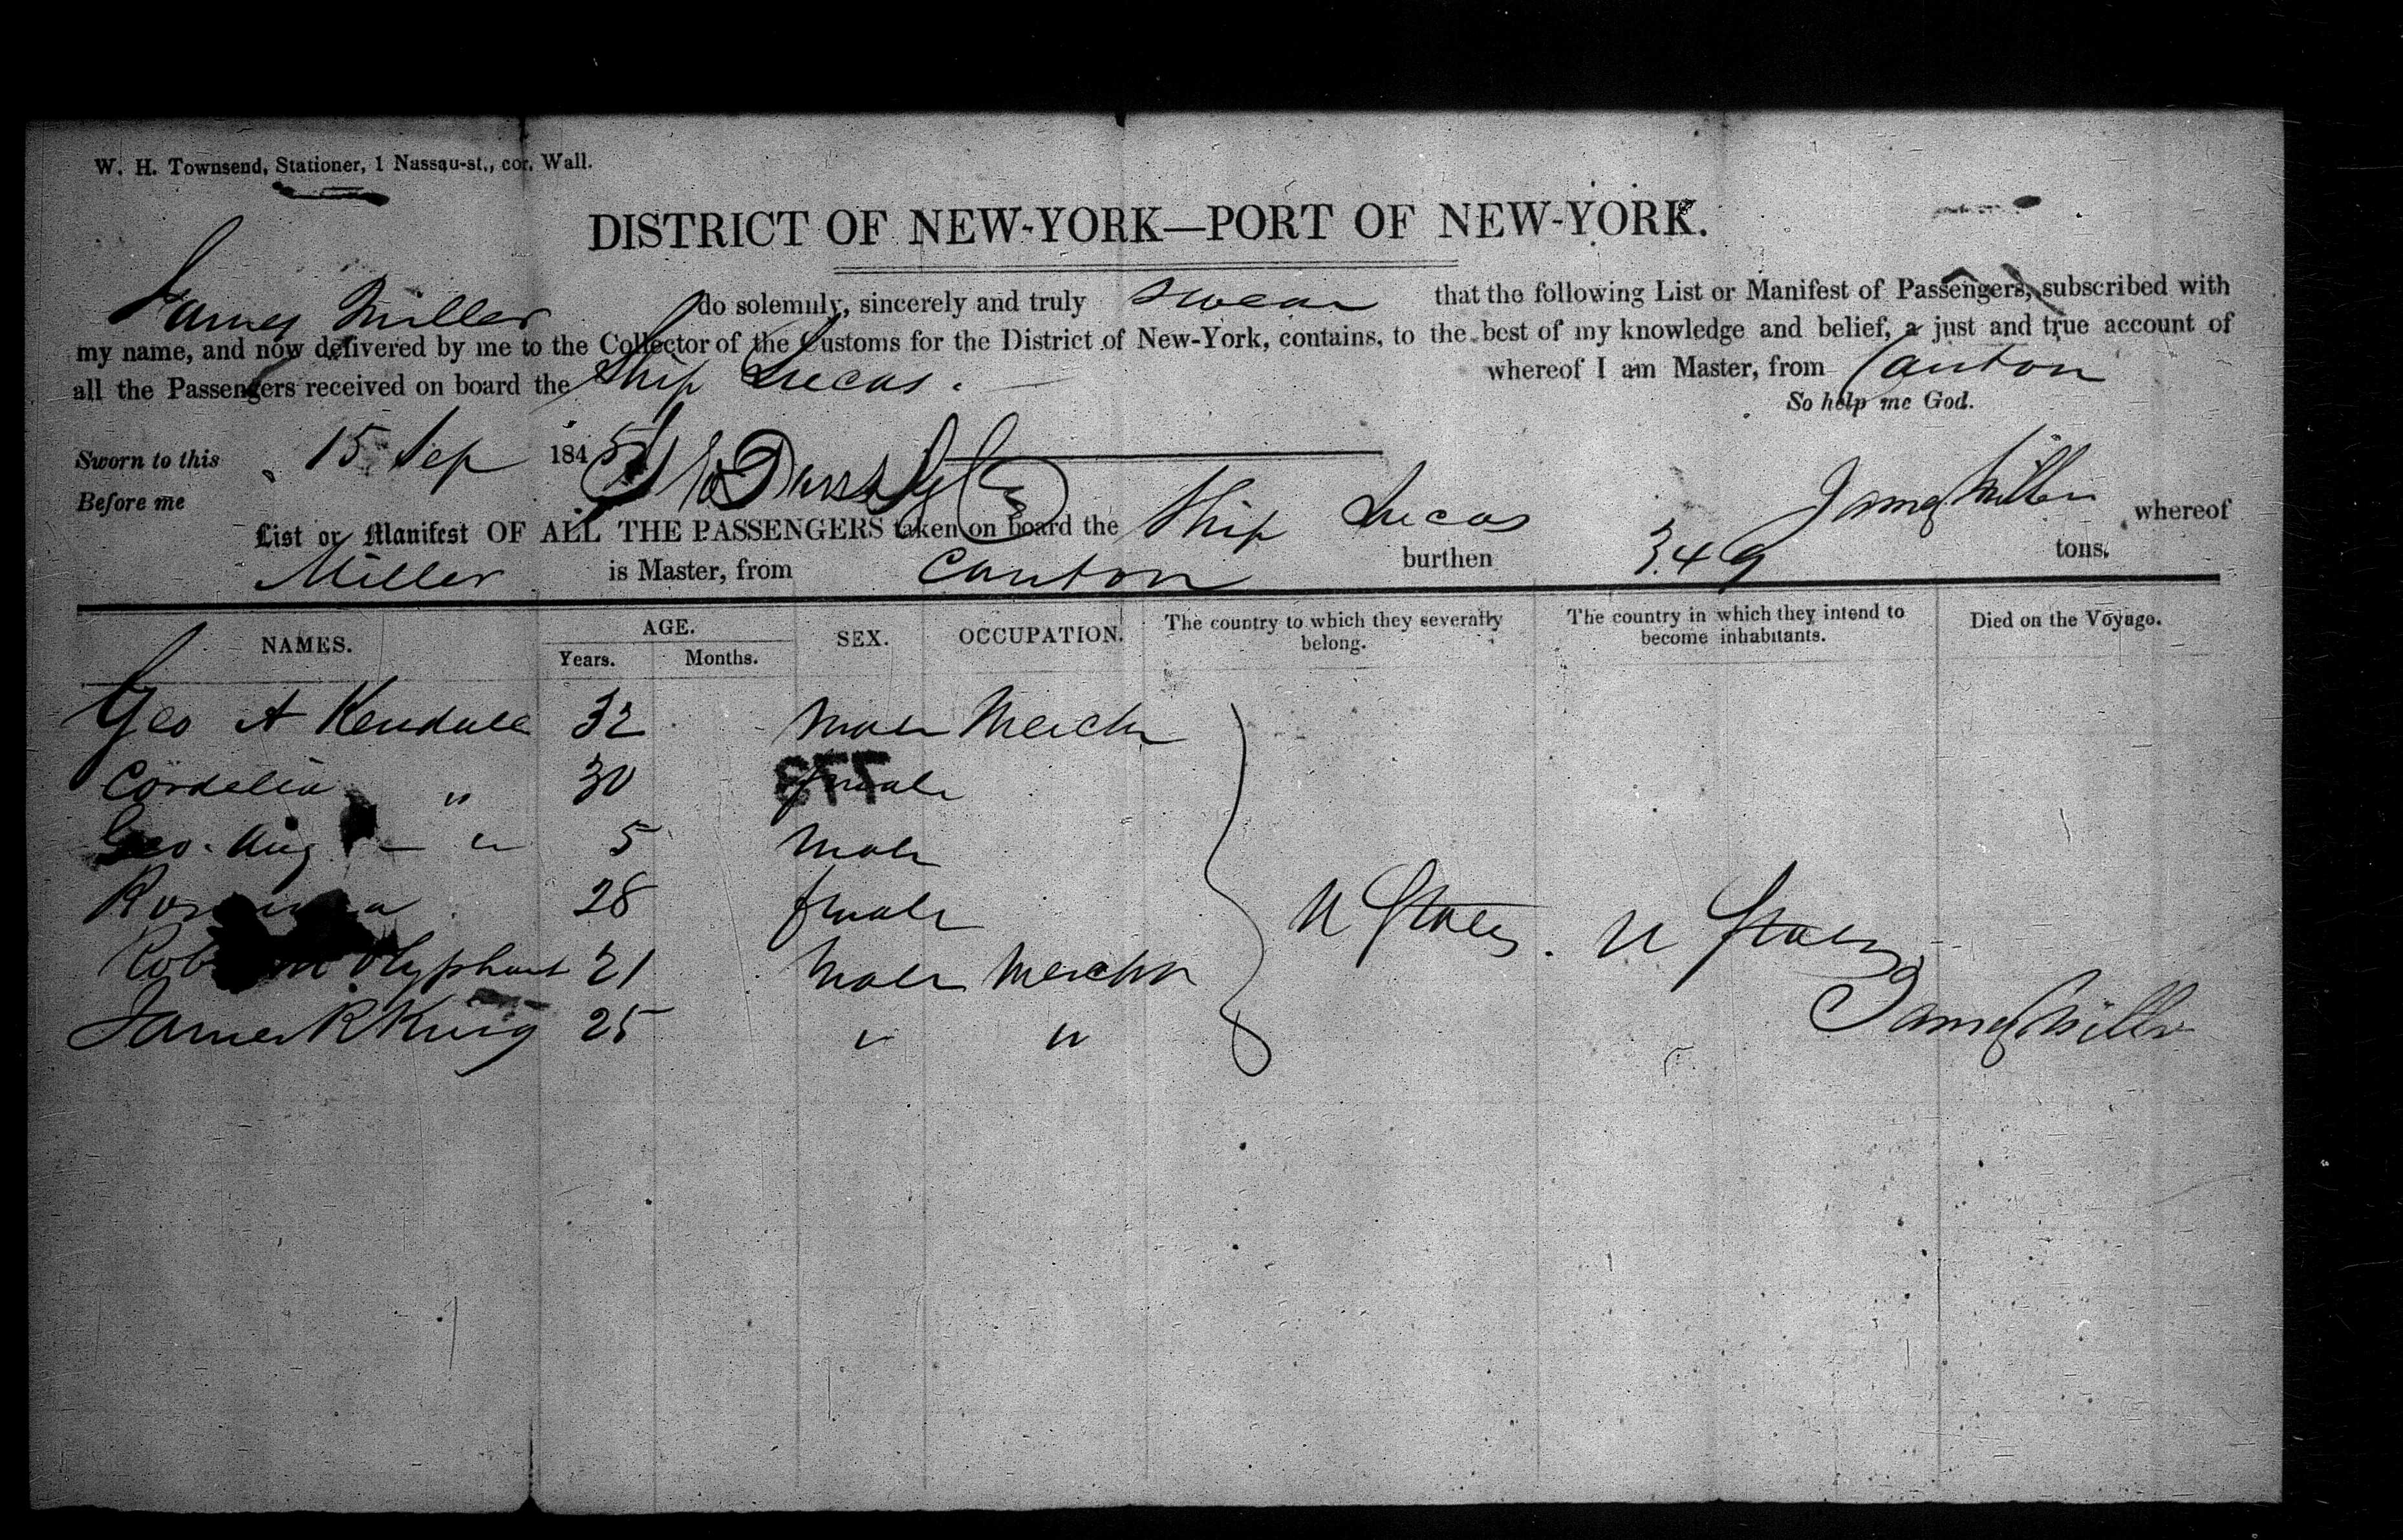 W. H. Townsend, Stationer, 1 Nassau-st., cor. Wall.
DISTRICT OF NEW-YORK—PORT OF NEW-YORK.
James Miller do solemnly, sincerely and truly swear that the following List or Manifest of Passengers, subscribed with
my name, and now delivered by me to the Collector of the Customs for the District of New-York, contains, to the best of my knowledge and belief, a just and true account of
all the Passengers received on board the Ship Lucas. whereof I am Master, from Canton
So help me God.
Sworn to this 15 Sep 1845
James Miller
Before me
List or Manifest OF ALL THE PASSENGERS taken on board the Ship Lucas whereof
Miller is Master, from Canton burthen 349 tons.
NAMES. AGE. SEX. OCCUPATION. The country to which they severally belong. The country in which they intend to become inhabitants. Died on the Voyage.
Years. Months.
Geo A Kendall 32 male Mercht
Cordelia " 30 female
778
Geo. Aug - " 5 male
28 female
Rob M Olyphant 21 male Mercht
James R King 25 " "
U States. U States
James Miller